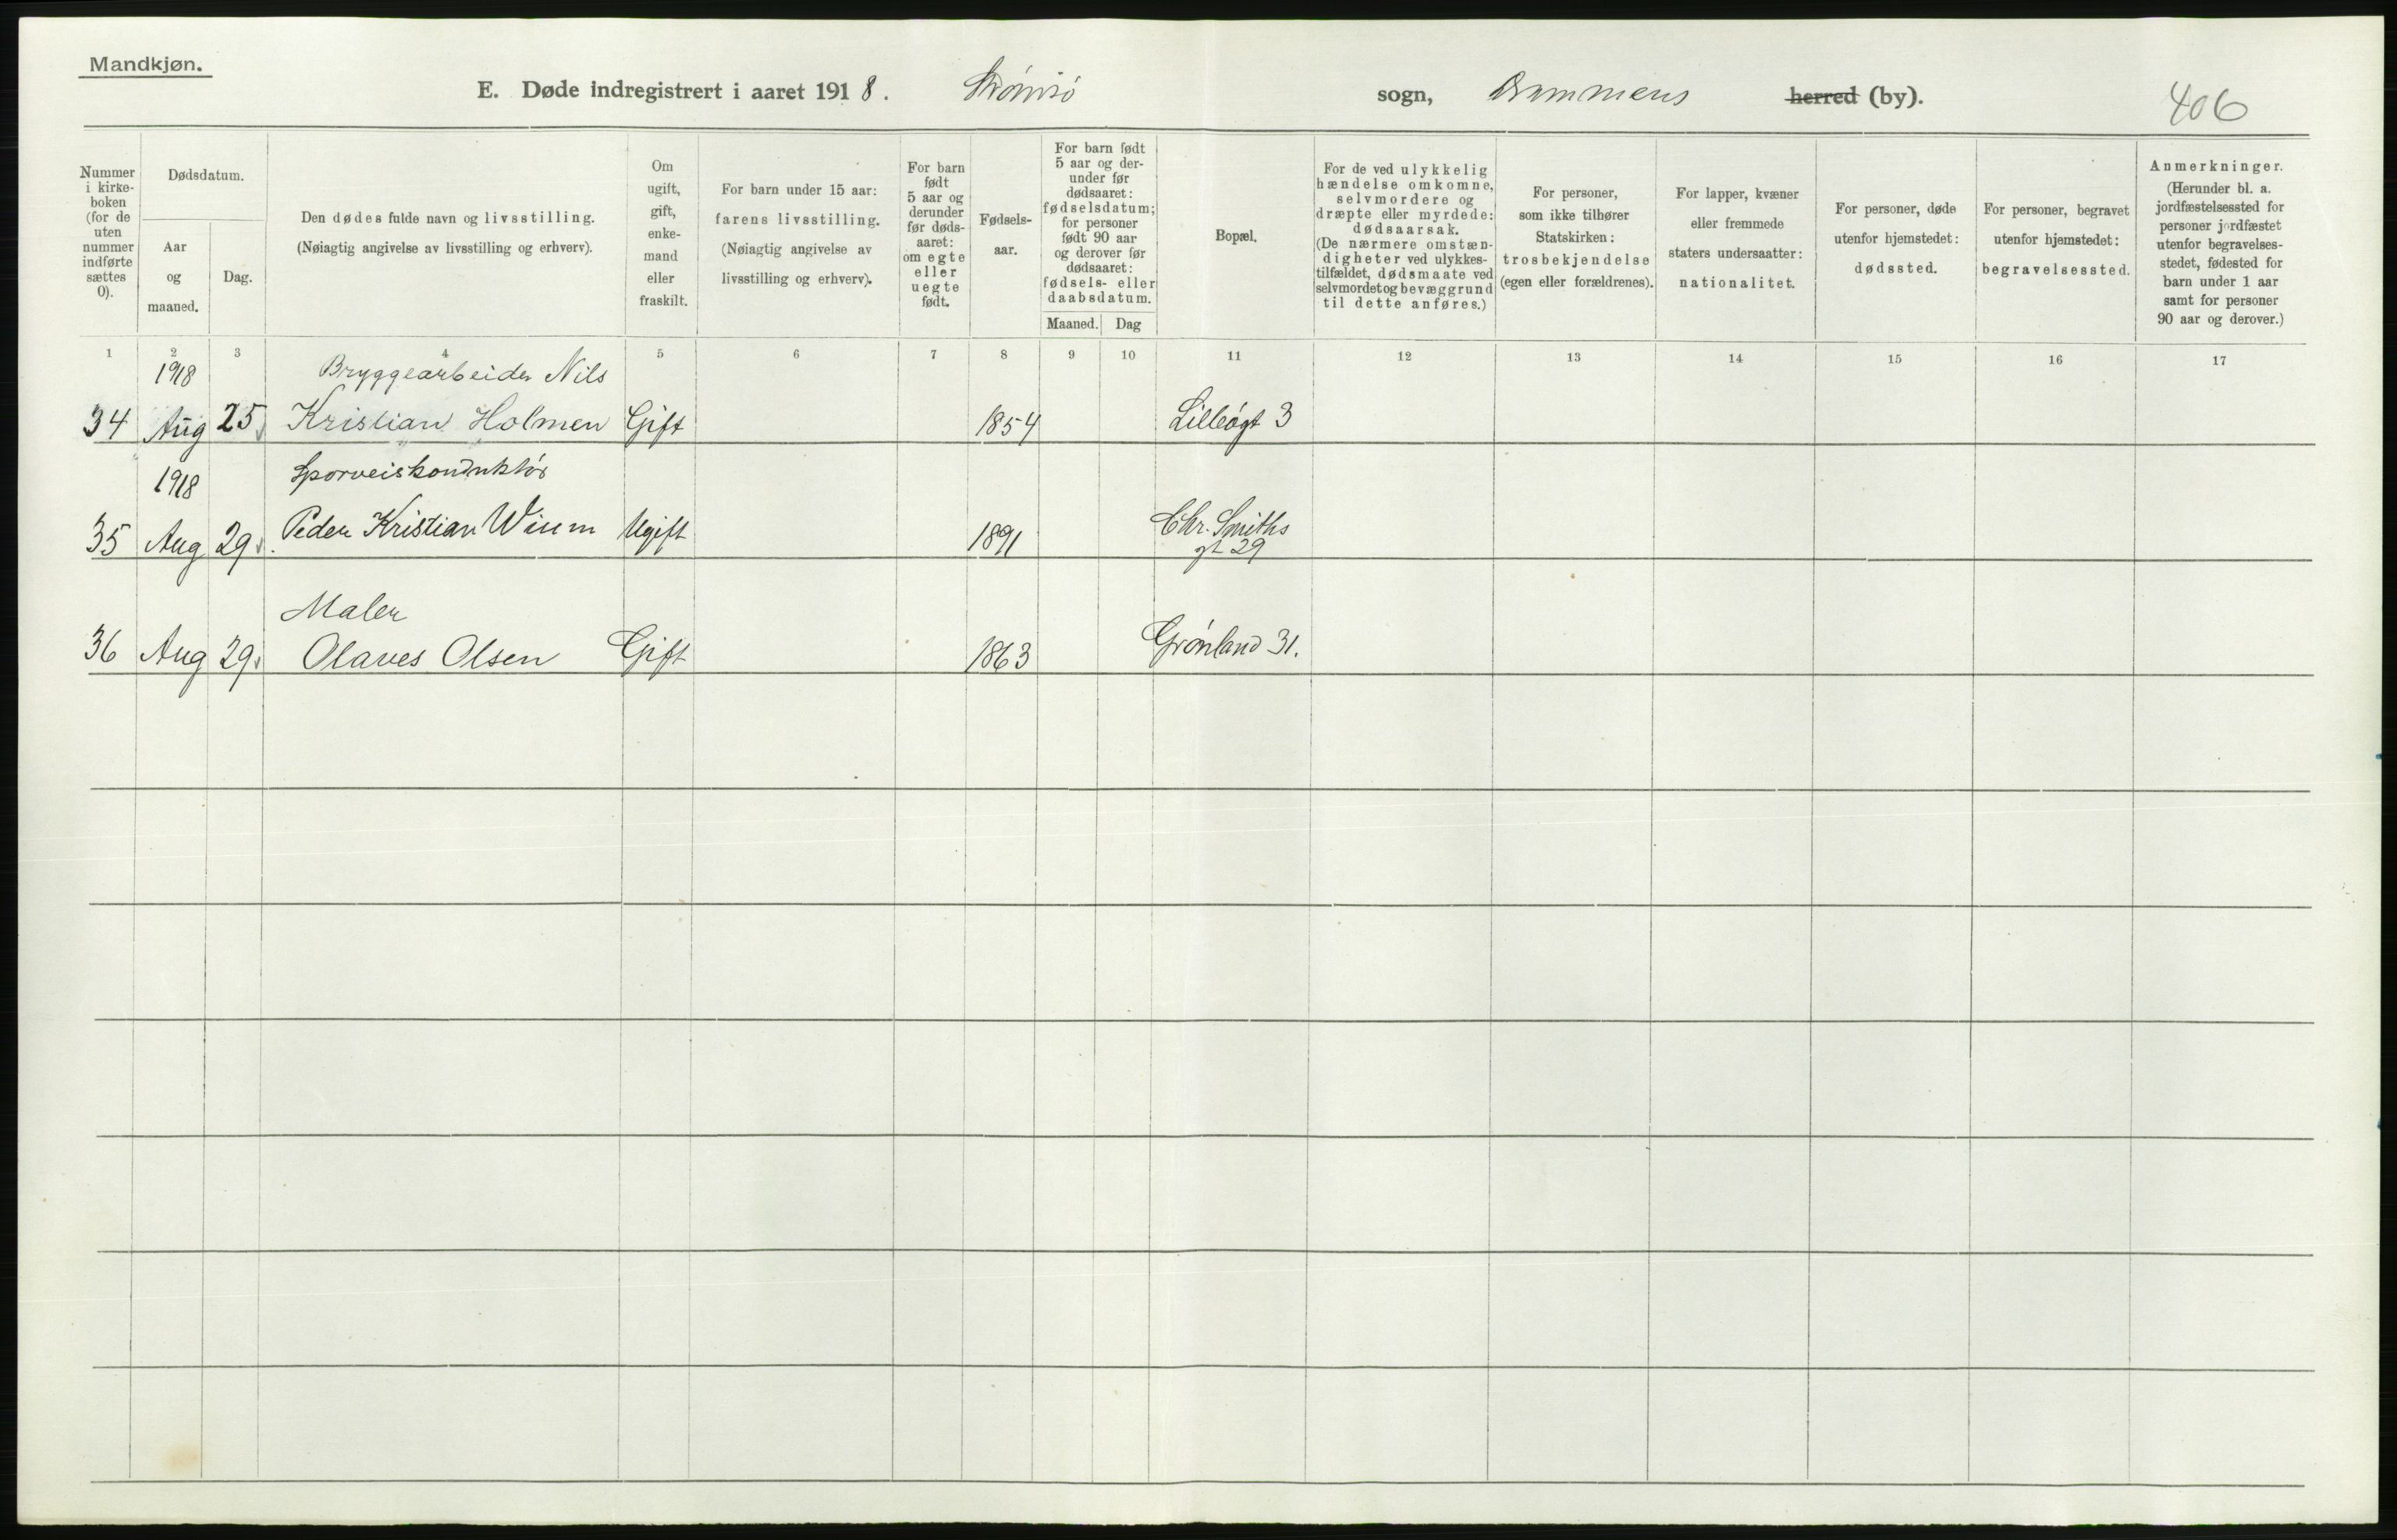 Mandkjøn.
E. Døde indregistrert i aaret 1918. Strømsø sogn, Drammens herred (by). 406
Nummer i kirke-boken (for de uten nummer indførte sættes 0).
Dødsdatum.
Aar og maaned.
Dag.
Den dødes fulde navn og livsstilling. (Nøiagtig angivelse av livsstilling og erhverv).
Om ugift, gift, enke-mand eller fraskilt.
For barn under 15 aar: farens livsstilling. (Nøiagtig angivelse av livsstilling og erhverv).
For barn født 5 aar og derunder før døds-aaret: om egte eller uegte født.
Fødsels-aar.
For barn født 5 aar og der-under før dødsaaret: fødselsdatum; for personer født 90 aar og derover før dødsaaret: fødsels- eller daabsdatum.
Maaned. Dag
Bopæl.
For de ved ulykkelig hændelse omkomne, selvmordere og dræpte eller myrdede: dødsaarsak. (De nærmere omstæn-digheter ved ulykkes-tilfældet, dødsmaate ved selvmordet og bevæggrund til dette anføres.)
For personer, som ikke tilhører Statskirken: trosbekjendelse (egen eller forældrenes).
For lapper, kvæner eller fremmede staters undersaatter: nationalitet.
For personer, døde utenfor hjemstedet: dødssted.
For personer, begravet utenfor hjemstedet: begravelsessted.
Anmerkninger. (Herunder bl. a. jordfæstelsessted for personer jordfæstet utenfor begravelses-stedet, fødested for barn under 1 aar samt for personer 90 aar og derover.)
1 2 3 4 5 6 7 8 9 10 11 12 13 14 15 16 17
1918 Bryggearbeider Nils
34 Aug 25 Kristian Holmen Gift 1854 Lilleøgt 3
1918 Sporveiskonduktør
35 Aug 29. Peder Kristian Wium Ugift 1891 Chr. Smiths
gt 29
Maler
36 Aug 29. Olaves Olsen Gift 1863 Grønland 31.